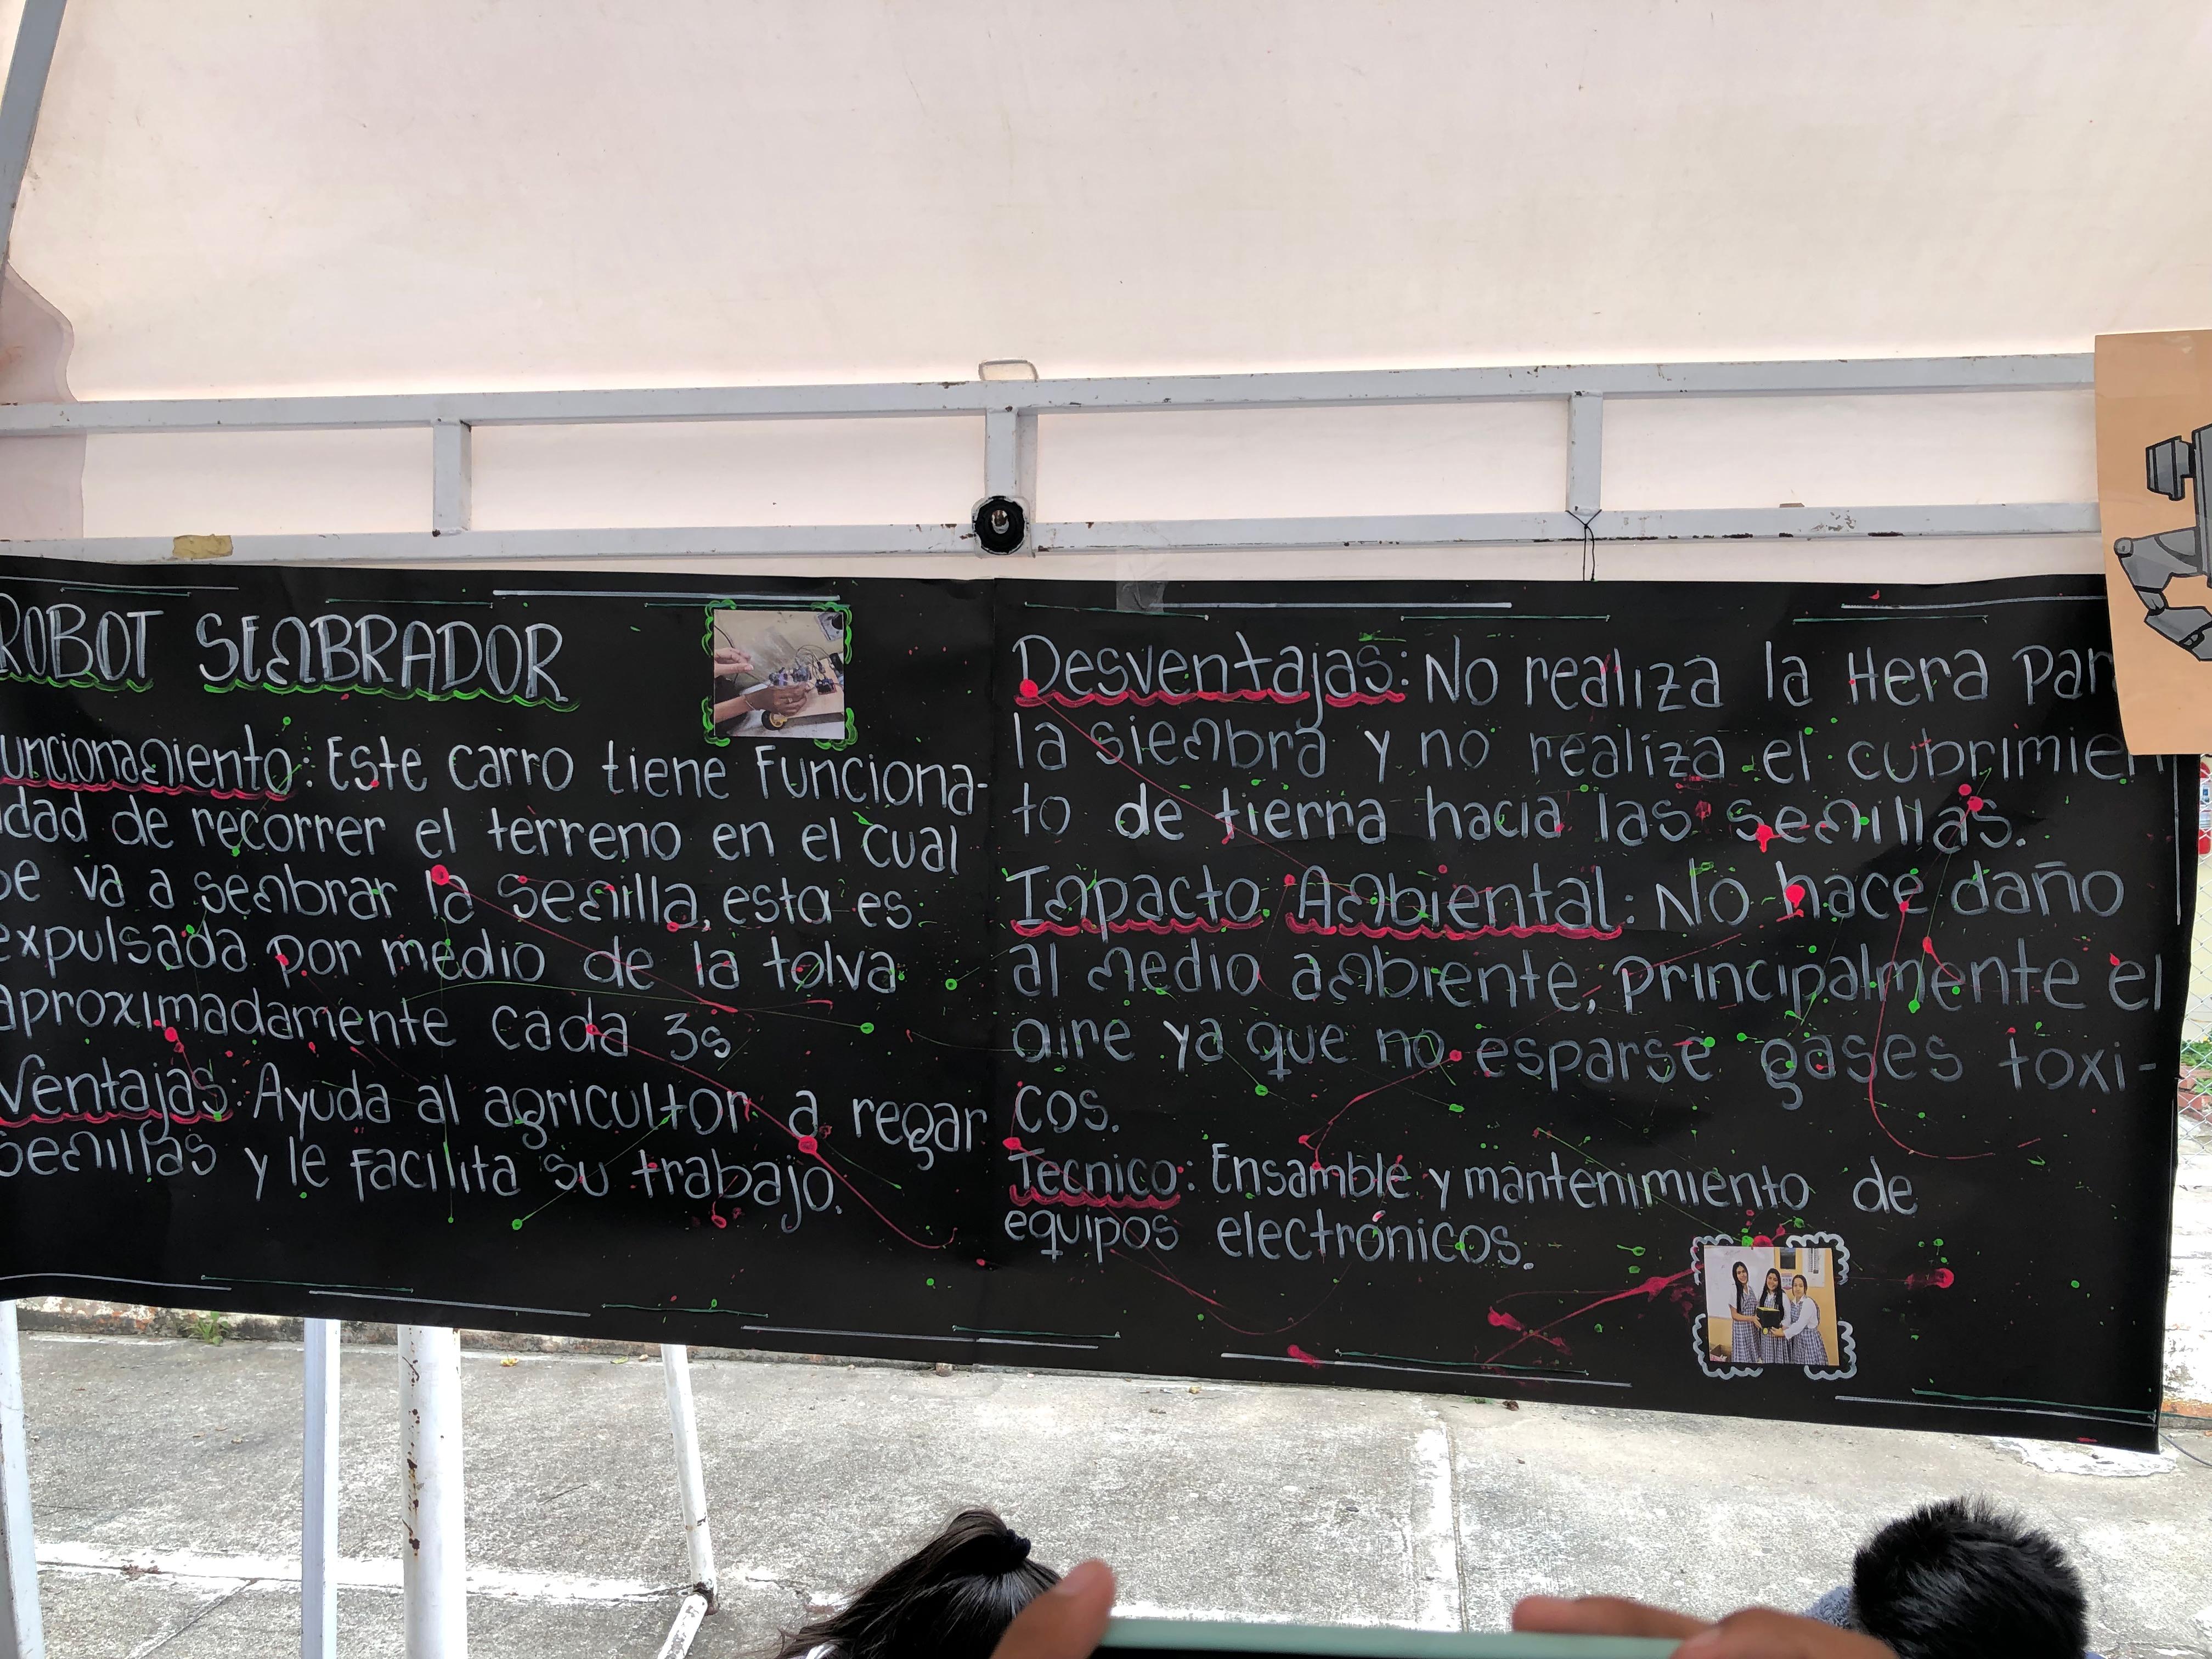 ROBOT SEMBRADOR
uncionamiento: Este carro tiene Funciona-
idad de recorrer el terreno en el cual
se va a sembrar la semilla, esta es
expulsada por medio de la tolva
aproximadamente cada 3s
Ventajas: Ayuda al agricultor a regar
semillas y le Facilita su trabajo.
Desventajas: No realiza la Hera Par
la siembra y no realiza el cubrimien
to de tierra hacia las semillas.
Impacto Ambiental: No hace daño
al medio ambiente, principalmente el
aire ya que no esparse gases toxi-
cos.
Tecnico: Ensamble y mantenimiento de
equipos electrónicos.